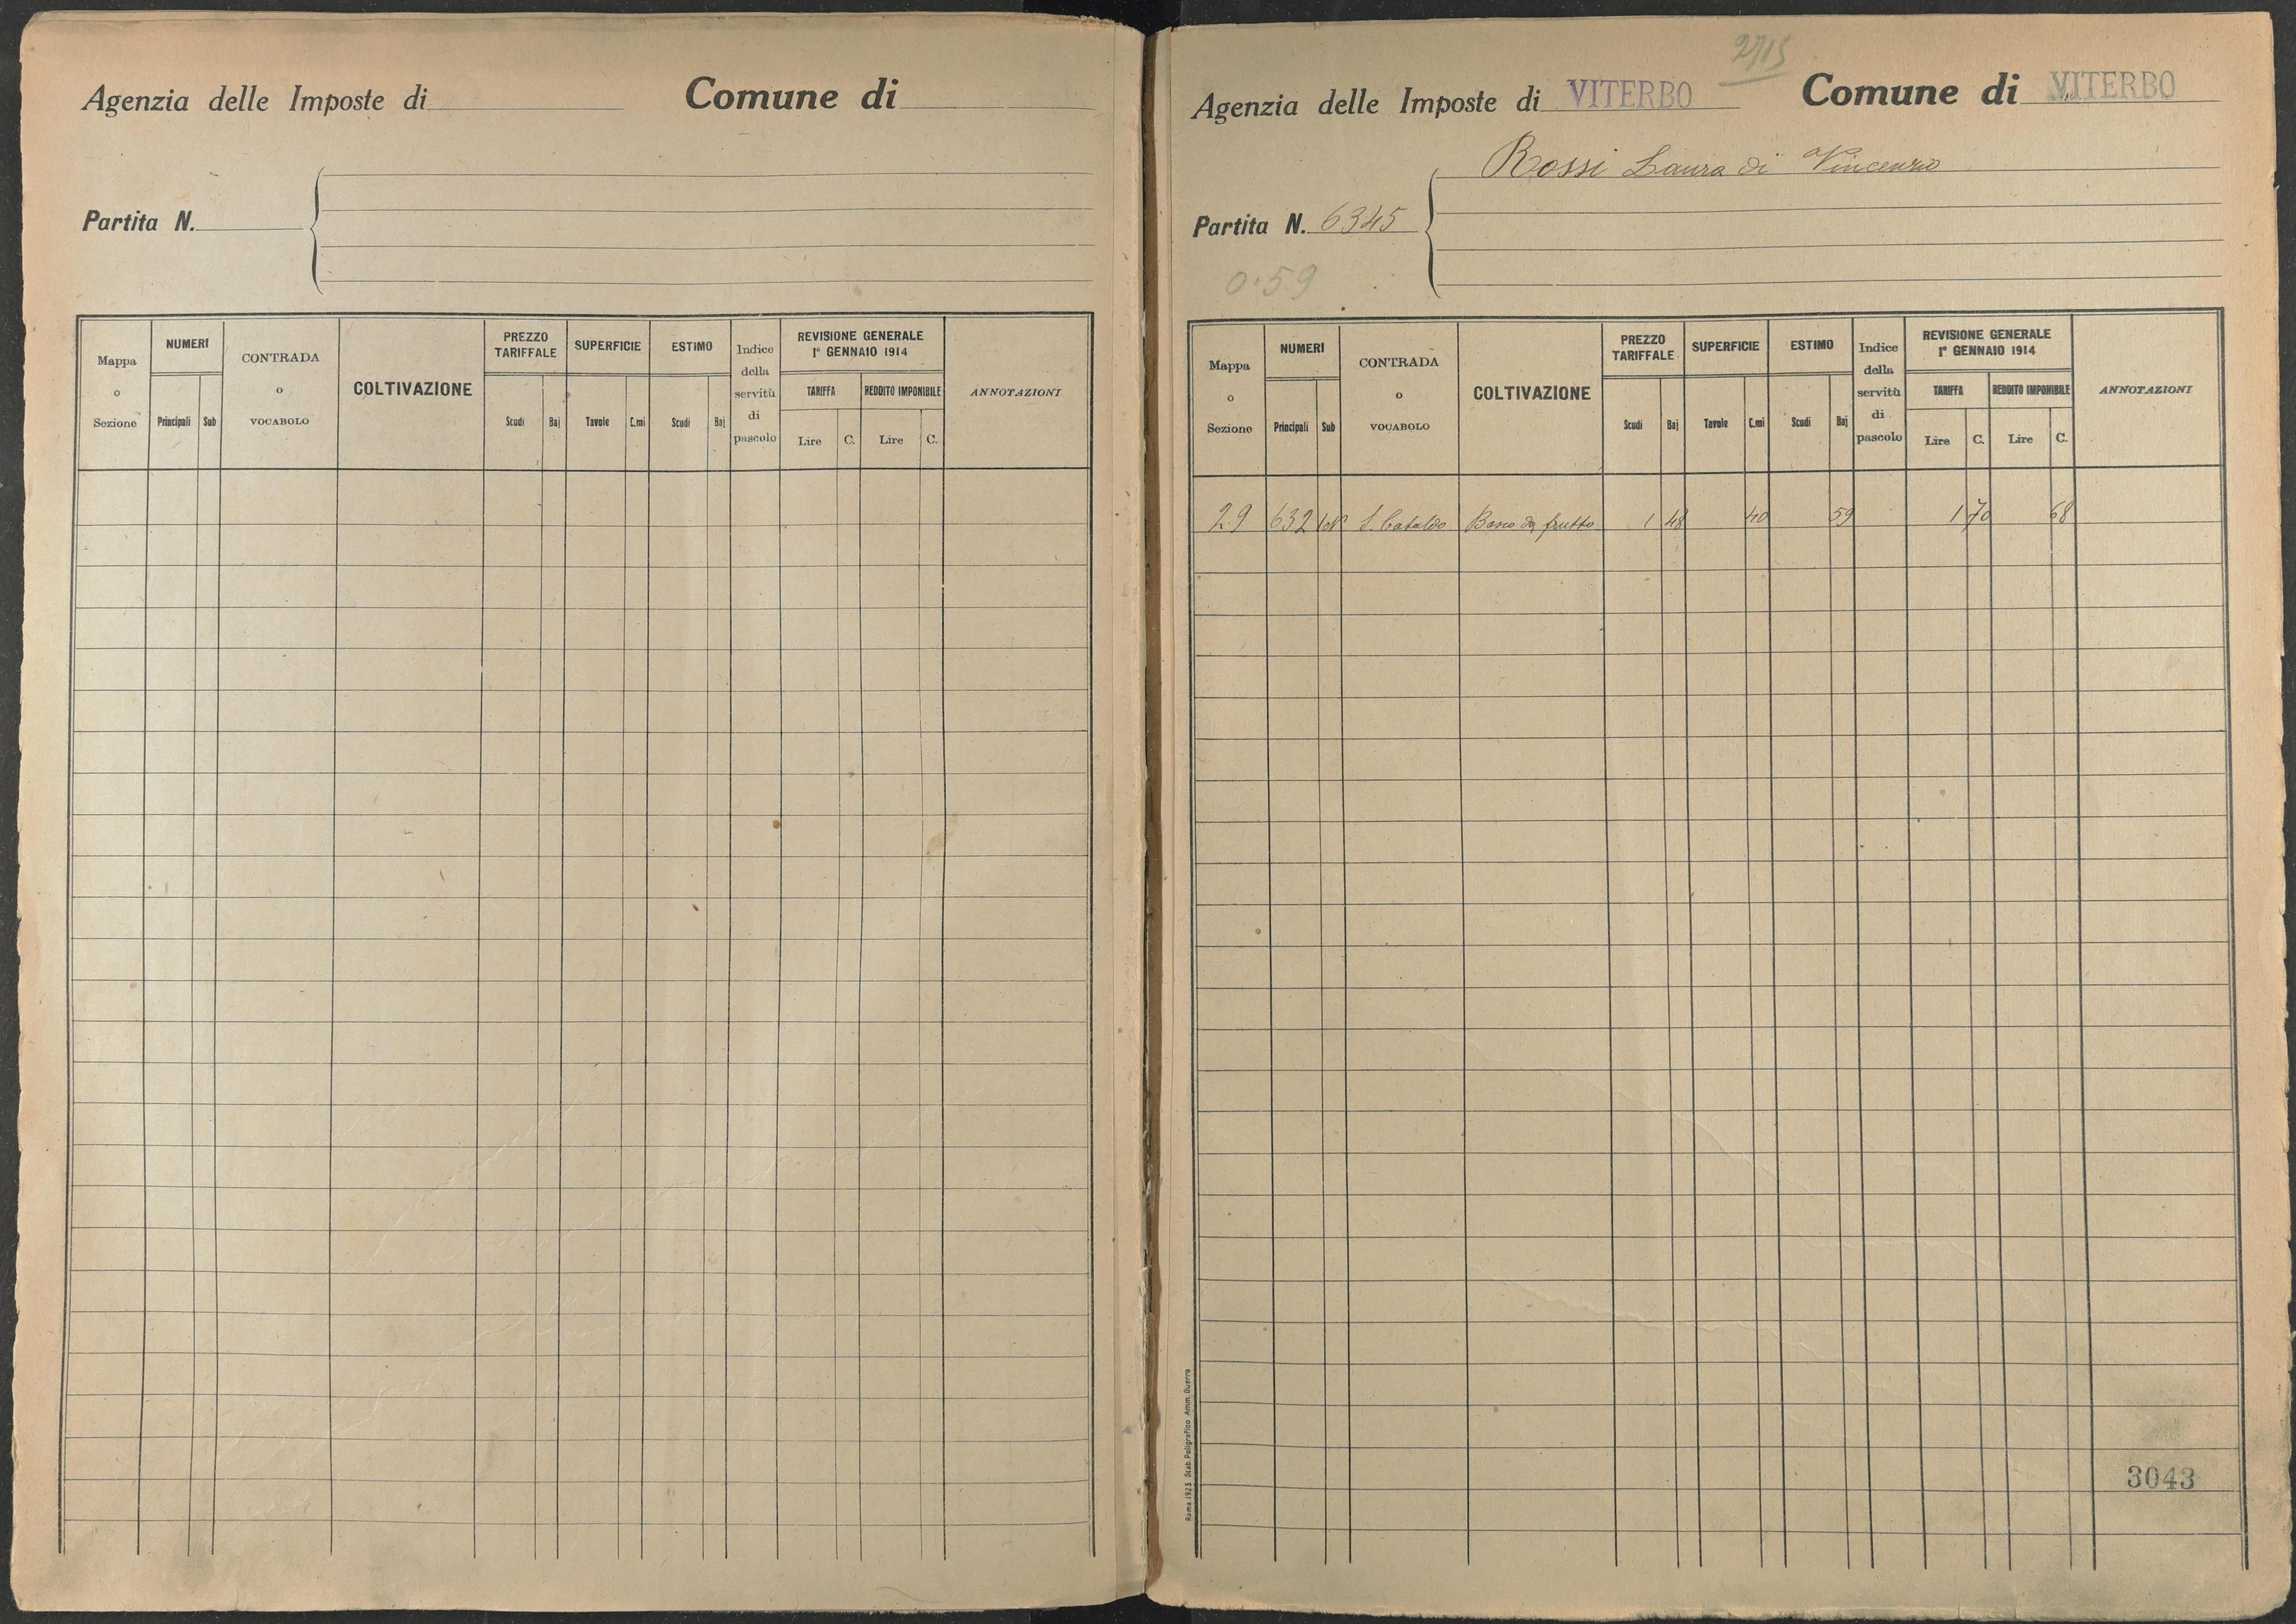 Agenzia delle Imposte di Comune di
Partita N.
Mappa o Sezione NUMERI CONTRADA o VOCABOLO COLTIVAZIONE PREZZO TARIFFALE SUPERFICIE ESTIMO Indice della servitù di pascolo REVISIONE GENERALE 1º GENNAIO 1914 ANNOTAZIONI
TARIFFA REDDITO IMPONIBILE
Principali Sub Scudi Baj Tavole C.mi Scudi Baj Lire C. Lire C.
2715
Agenzia delle Imposte di VITERBO Comune di VITERBO
Rossi Laura di Vincenzo
Partita N. 6345
0.59
Mappa o Sezione NUMERI CONTRADA o VOCABOLO COLTIVAZIONE PREZZO TARIFFALE SUPERFICIE ESTIMO Indice della servitù di pascolo REVISIONE GENERALE 1º GENNAIO 1914 ANNOTAZIONI
TARIFFA REDDITO IMPONIBILE
Principali Sub Scudi Baj Tavole C.mi Scudi Baj Lire C. Lire C.
29 632 S. Cataldo da frutto 1 48 40 59 1 70 68
3043
Roma 1923 Stab. Poligrafico Amm. Guerra